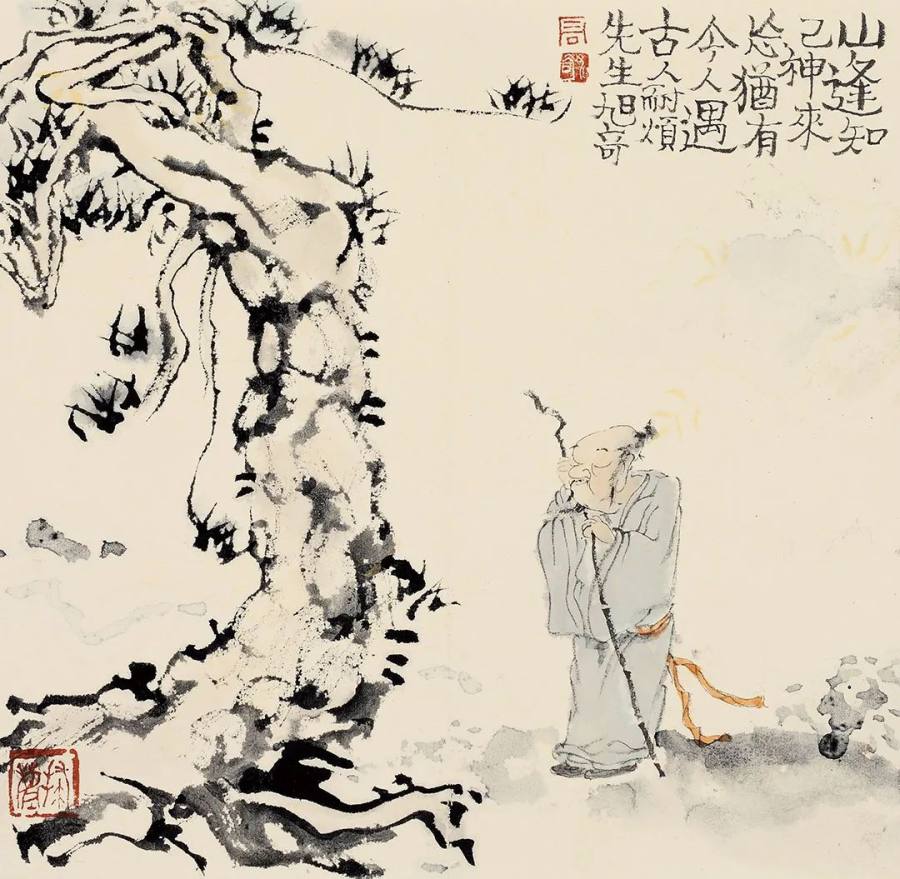 山逢知
己神來
猶有
今人遇
古人耐煩
先生旭